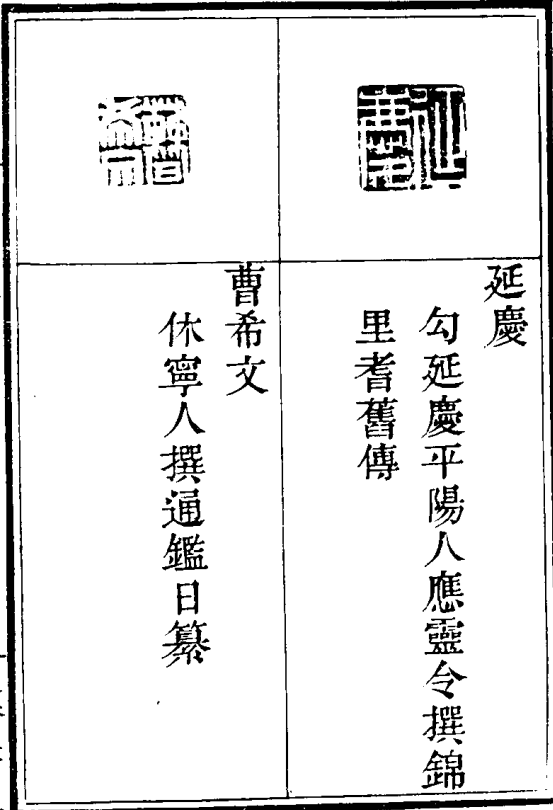 延慶
勾延慶平陽人應靈令撰錦
里耆舊傳
曹希文
休寧人撰通鑑日纂